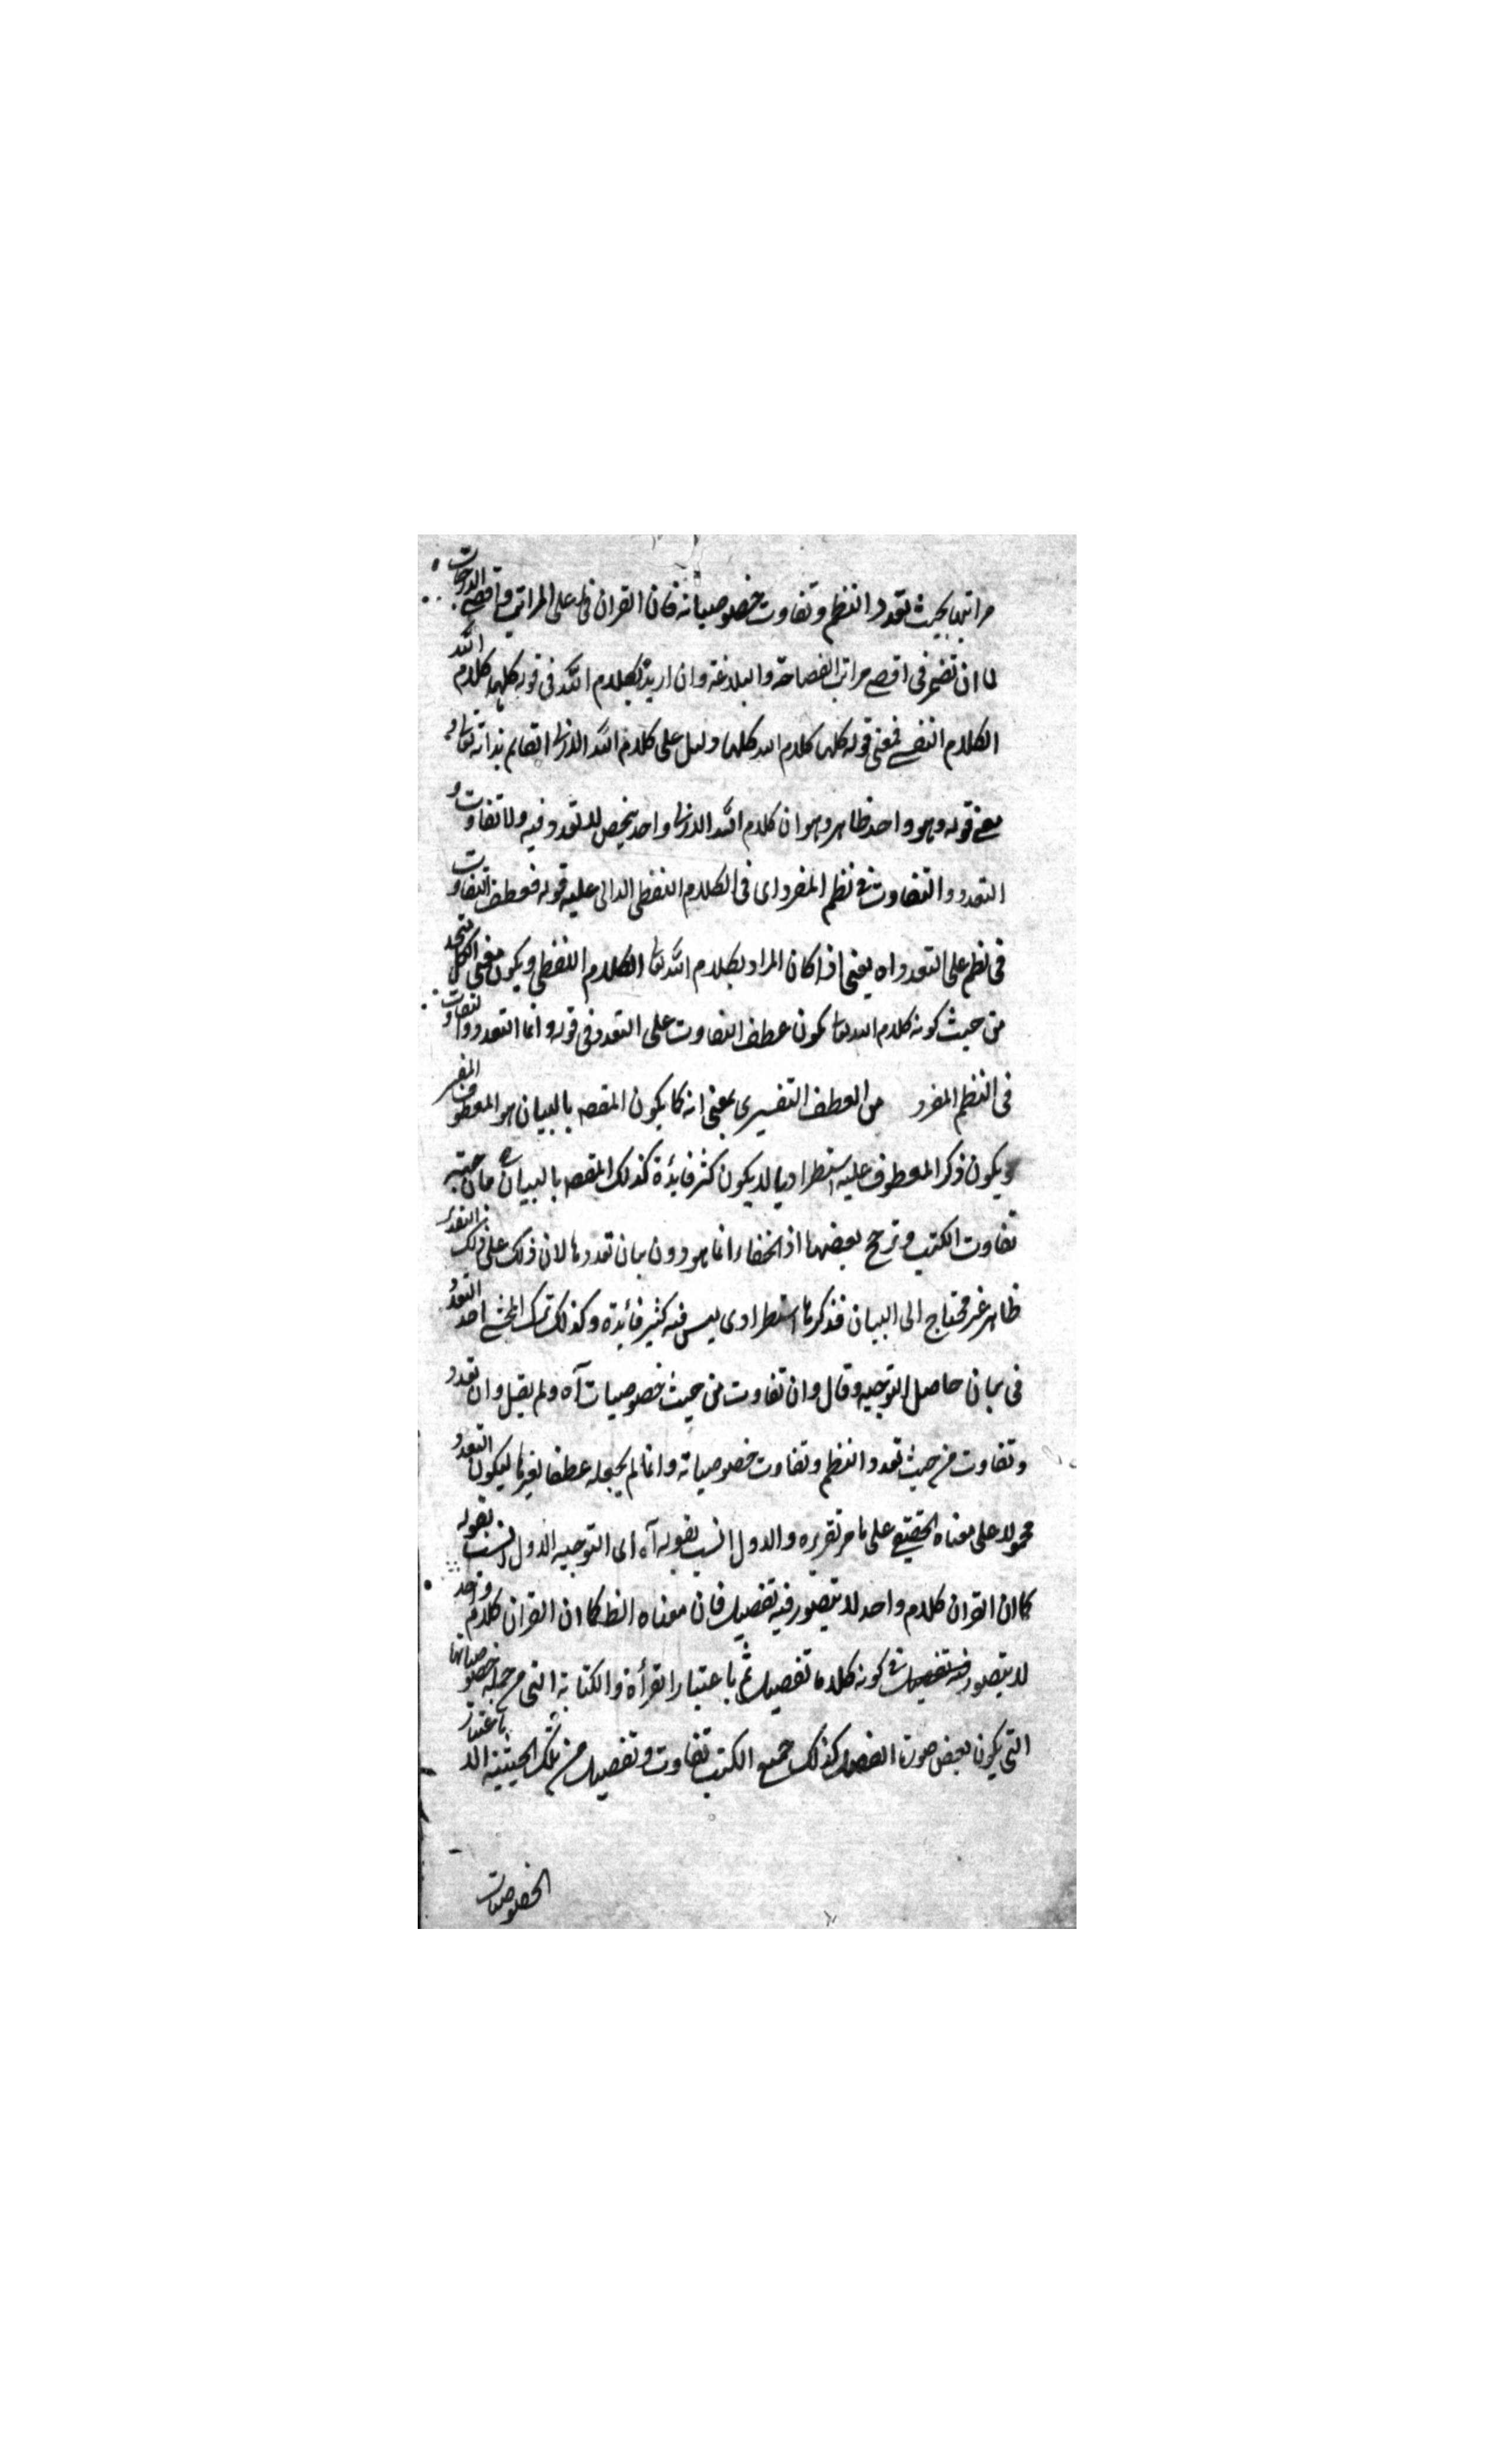 مراتبها بحيث تعدد النظم وتفاوت خصوصياته فان القران في اعلى المراتب واقصى الدرجات
لما ان تضم في اقصى مراتب الفصاحة والبلاغة وان اريد بكلام الله في قوله كلها كلام الله
الكلام النفسي فمعنى قوله كلها كلام الله كلها دليل على كلام الله الازلي القائم بذاته تعالى و
معنى قوله وهو واحد ظاهر وهو ان كلام الله الازلي واحد شخص لا تعدد فيه ولا تفاوت و
التعدد والتفاوت في نظم المفرد اى في الكلام اللفظي الدال عليه قوله فعطف التفاوت
في نظم على التعدد اه يعنى اذا كان المراد بكلام الله تعا الكلام اللفظي ويكون معنى الكل متحد
من حيث كونه كلام الله تعا يكون عطف التفاوت على التعدد في قوله وانما التعدد والتفاوت
في النظم المفرد من العطف التفسيرى بمعنى انه كما يكون المقصه بالبيان هو المعطوف المفسر
ويكون ذكر المعطوف عليه استطراديا لا يكون كثير فايدة كذلك المقصه بالبيان
تفاوت الكتب وترجح بعضها اذ الخفاء انما هو دون بيان تعددها لان ذلك على ذلك التقدير
ظاهر غير محتاج الى البيان فذكرها استطرادى ليس فيه كثير فائدته وكذلك ترك المحشي احد التعدد
في بيان حاصل التوجيه وقال وان تفاوت من حيث خصوصيات آه ولم يقل وان تعدد
وتفاوت من حيث تعدد النظم وتفاوت خصوصياته وانما لم يجعله عطفا لغيرها ليكون التعدد
محمولا على معناه الحقيقي على ما مر تقريره والاول انسب بقوله آه اى التوجيه الاول انسب بقوله
كما ان القران كلام واحد لا يتصور فيه تفضيل فان معناه الظ كما ان القران كلام واحد
لا يتصور فيه تفضيل في كونه كلاما تفضيل ثم باعتبار القرأة والكتابة التي من جملة خصوصياتها
التي يكون بعض صوت افضل كذلك جميع الكتب تفاوت وتفضيل من تلك الحيثية الا باعتبار
الخصوصيات